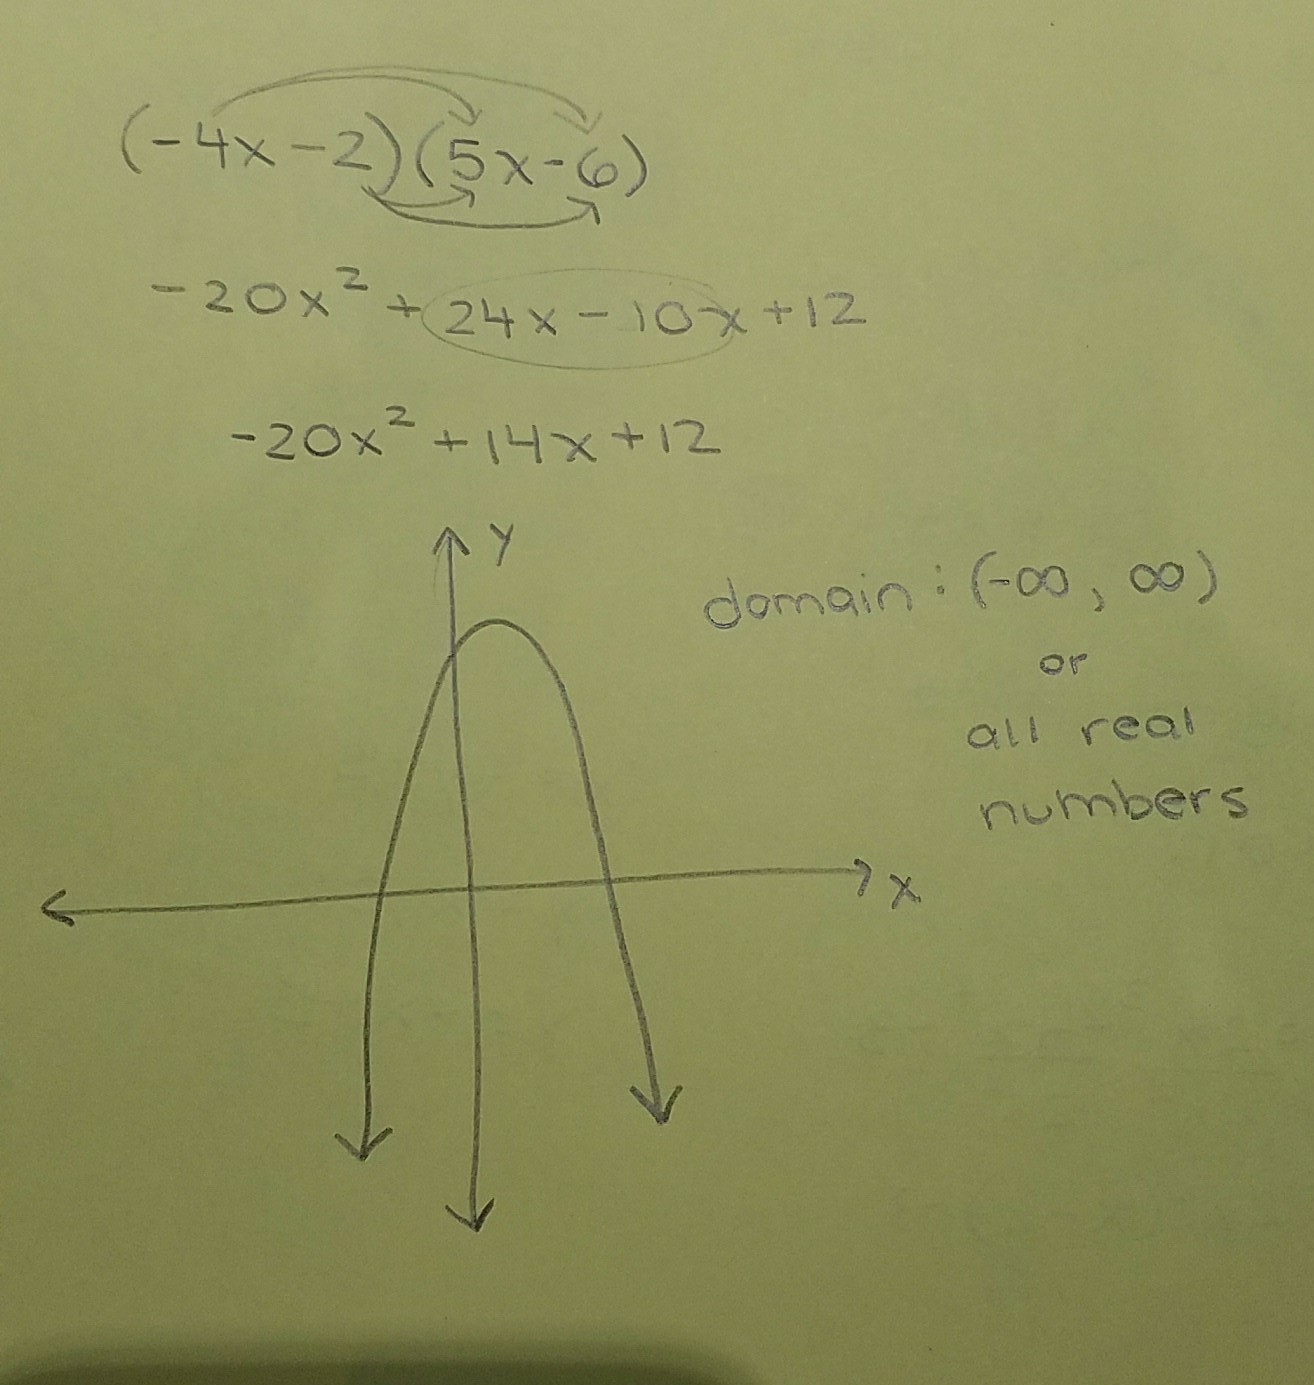 (-4x-2)(5x-6)
-20x² + 24x - 10x + 12
-20x² + 14x + 12
y
domain: (-∞, ∞)
or
all real
numbers
x